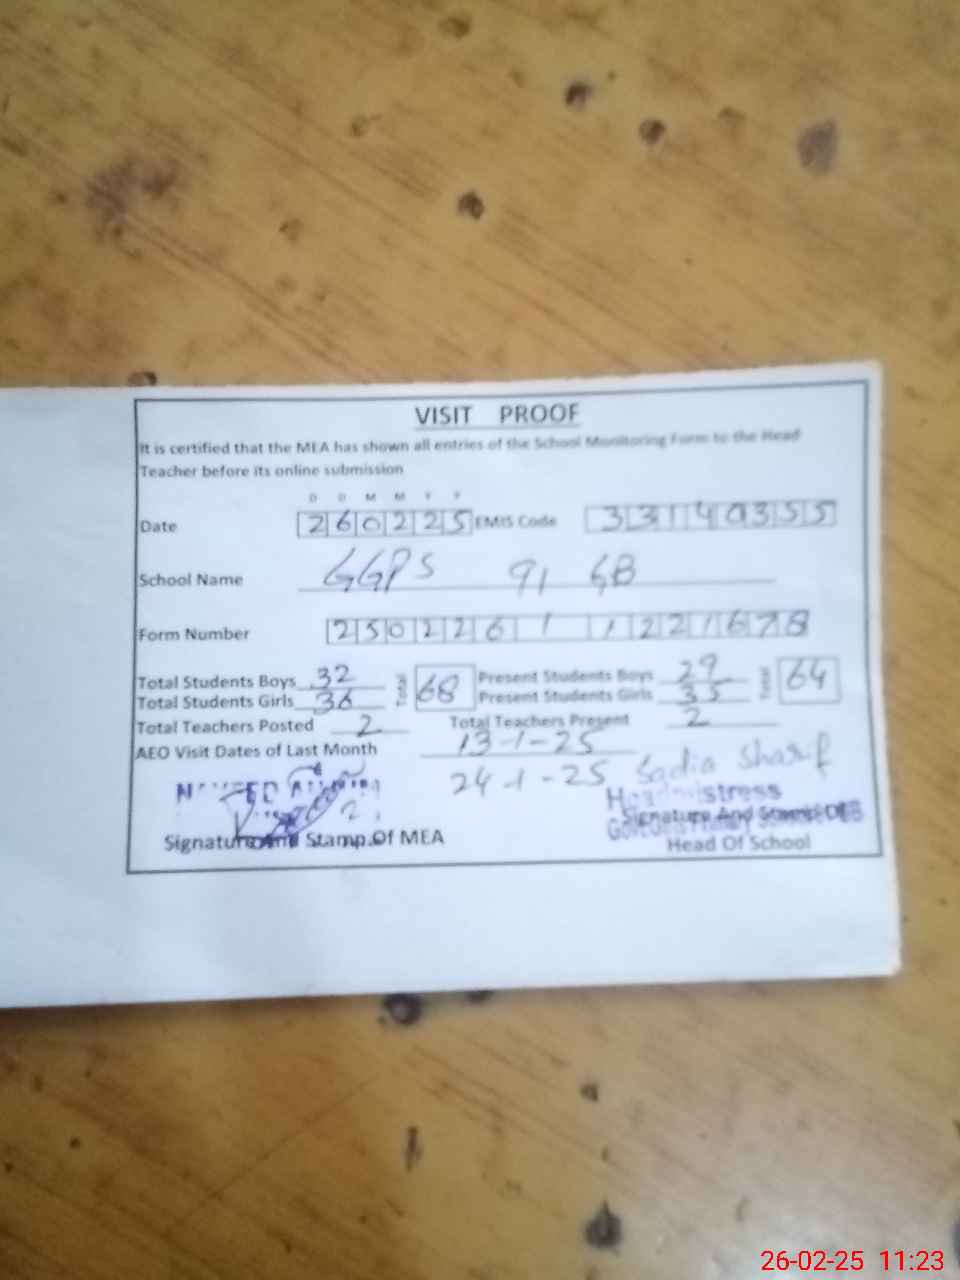 VISIT PROOF
It is certified that the MEA has shown all entries of the School Monitoring Form to the Head
Teacher before its online submission
D D M M Y Y
Date 260225 EMIS Code 33140355
School Name GGPS 91 GB
Form Number 2502261 1221678
Total Students Boys 32 Total 68 Present Students Boys 29 Total 64
Total Students Girls 36 Present Students Girls 35
Total Teachers Posted 2 Total Teachers Present 2
AEO Visit Dates of Last Month 13-1-25
24-1-25 Sadia Sharif
Headmistress
Signature And Stamp Of MEA Signature And Stamp Of
Head Of School
26-02-25 11:23